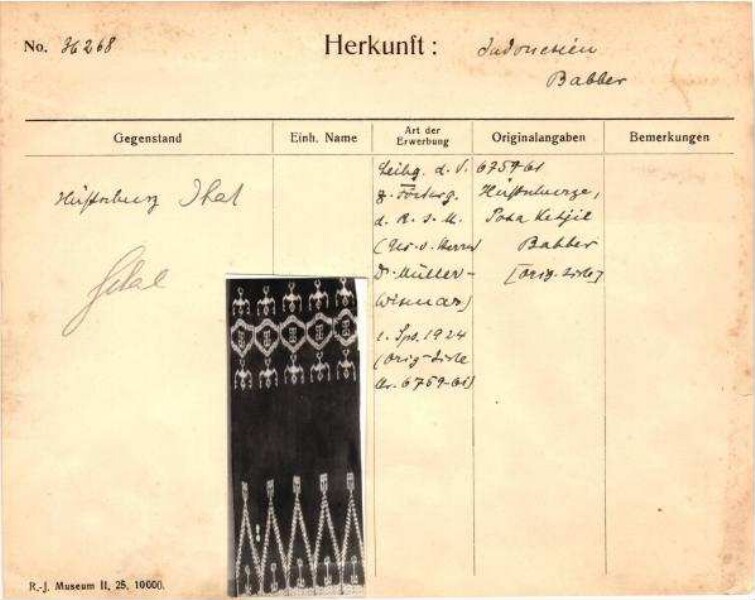 No. 36268
Herkunft:
Indonesien
Babber
Gegenstand
Einh. Name
Art der Erwerbung
Originalangaben
Bemerkungen
Hüftschurz Ikat
Leihg. d. V.
z. Förderg.
d. R. J. M.
(Us. v. Herrn
Dr. Müller-
Wismar)
s. Sps. 1924
(Orig-Liste
Nr. 6759-61)
6759-61
Hüftschurze,
Pota Ketjil
Babber
[Orig. Liste]
R.-J. Museum II. 25. 10000.